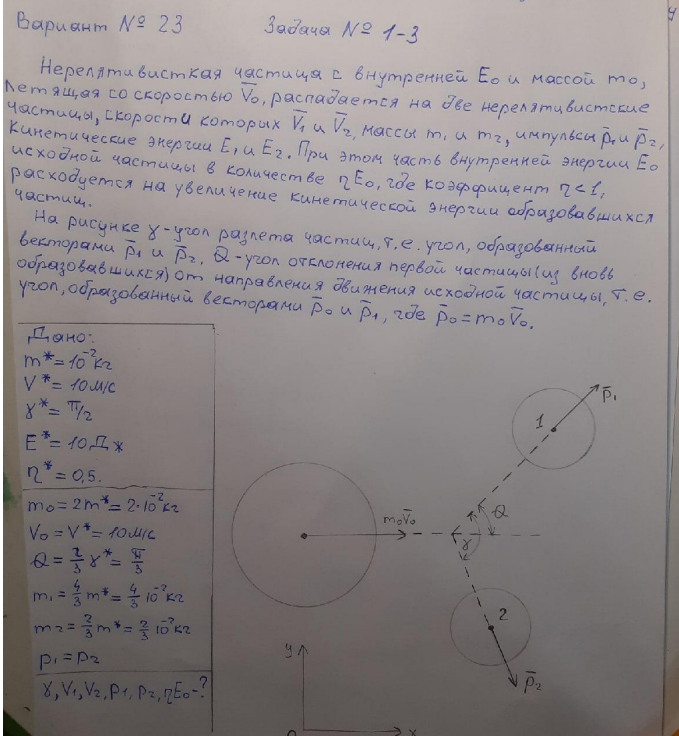 Вариант № 23 Задача № 1-3
Нерелятивисткая частица с внутренней E₀ и массой m₀,
летящая со скоростью V̄₀, распадается на две нерелятивистские
частицы, скорости которых V̄₁ и V̄₂, массы m₁ и m₂, импульсы p̄₁ и p̄₂,
кинетические энергии E₁ и E₂. При этом часть внутренней энергии E₀
исходной частицы в количестве ηE₀, где коэффицент η<1,
расходуется на увеличение кинетической энергии образовавшихся
частиц.
На рисунке γ-угол разлета частиц, т.е. угол, образованный
векторами p̄₁ и p̄₂, Q-угол отклонения первой частицы (из вновь
образовавшихся) от направления движения исходной частицы, т.е.
угол, образованный векторами p̄₀ и p̄₁, где p̄₀=m₀V̄₀.
Дано:
m*=10⁻²кг
V*=10м/с
γ*=π/2
E*=10Дж
η*=0,5.
m₀=2m*=2·10⁻²кг
V₀=V*=10м/с
Q=2/3 γ*=π/3
m₁=4/3 m*=4/3 10⁻²кг
m₂=2/3 m*=2/3 10⁻²кг
p₁=p₂
γ, V₁, V₂, p₁, p₂, ηE₀-?
p̄₁
1
m₀V̄₀
Q
γ
2
p̄₂
y
0
x